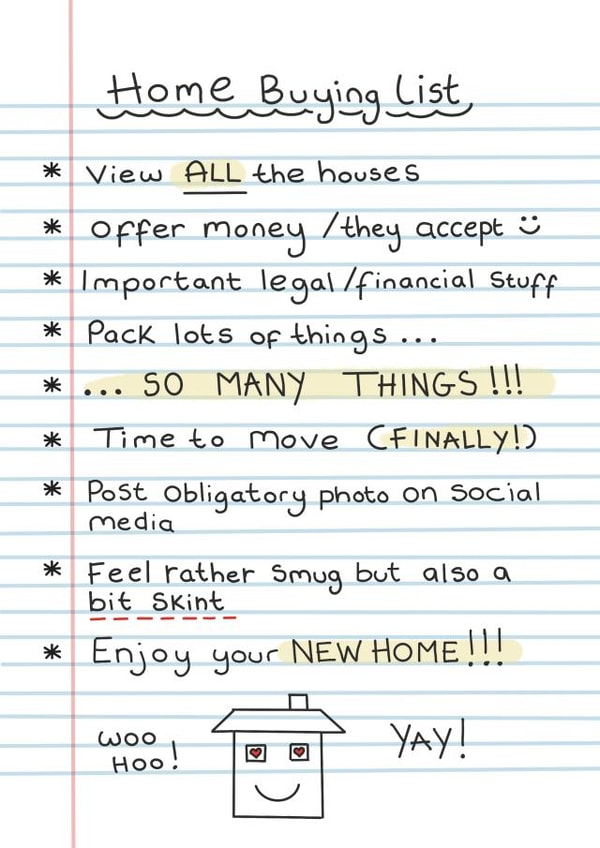 Home Buying List
* View ALL the houses
* Offer money /they accept :)
* Important legal/financial stuff
* Pack lots of things ...
* ... SO MANY THINGS!!!
* Time to move (FINALLY!)
* Post obligatory photo on social
media
* Feel rather smug but also a
bit skint
* Enjoy your NEW HOME!!!
WOO
HOO!
YAY!